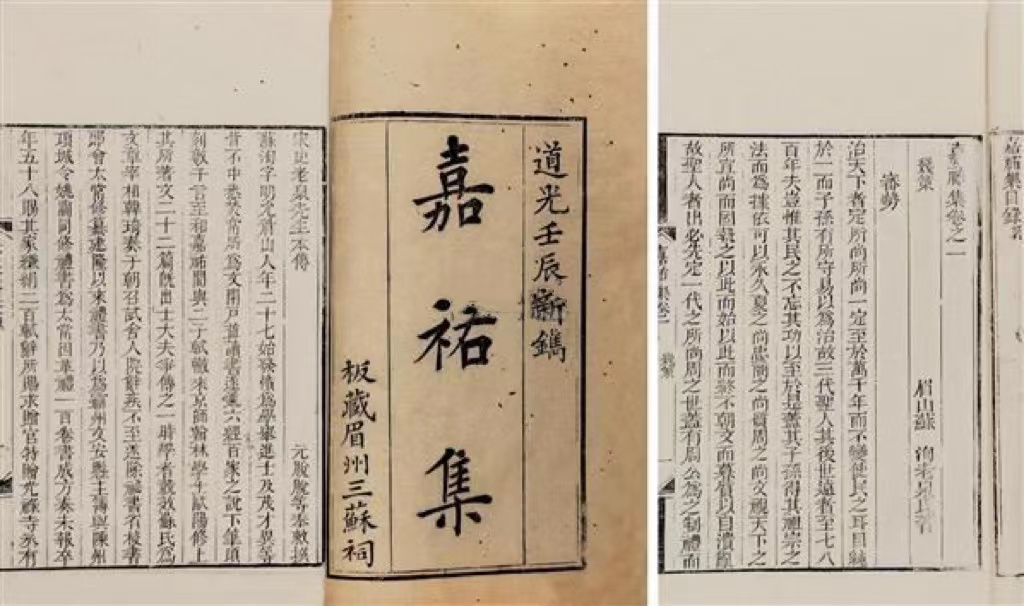 道光壬辰新鐫
嘉祐集
板藏眉州三蘇祠
宋史老泉先生本傳
元脫脫等奉敕撰
蘇洵字明允眉山人年二十七始發憤爲學舉進士及茂才異等
皆不中悉焚常所爲文閉戶益讀書遂通六經百家之說下筆頃
刻數千言至和嘉祐間與二子軾轍來京師翰林學士歐陽修上
其所著文二十二篇旣出士大夫爭傳之一時學者競效蘇氏爲
文章宰相韓琦奏于朝召試舍人院辭疾不至遂除秘書省校書
郎會太常修纂建隆以來禮書乃以爲霸州文安縣主簿與陳州
項城令姚闢同修禮書爲太常因革禮一百卷書成方奏未報卒
年五十八賜其家縑絹二百軾辭所賜求贈官特贈光祿寺丞有
嘉祐集目錄
嘉祐集卷之一
眉山蘇 洵老泉氏著
幾策
審勢
治天下者定所尚所尚一定至於萬千年而不變使民之耳目純
於一而子孫有所守易以爲治故三代聖人其後世遠者至七八
百年夫豈惟其民之不忘其功以至於是蓋其子孫得其祖宗之
法而爲據依可以永久夏之尚忠商之尚質周之尚文視天下之
所宜尚而固執之以此而始以此而終不朝文而暮質以自潰亂
故聖人者出必先定一代之所尚周之世蓋有周公爲之制禮而
嘉祐集卷一 幾策